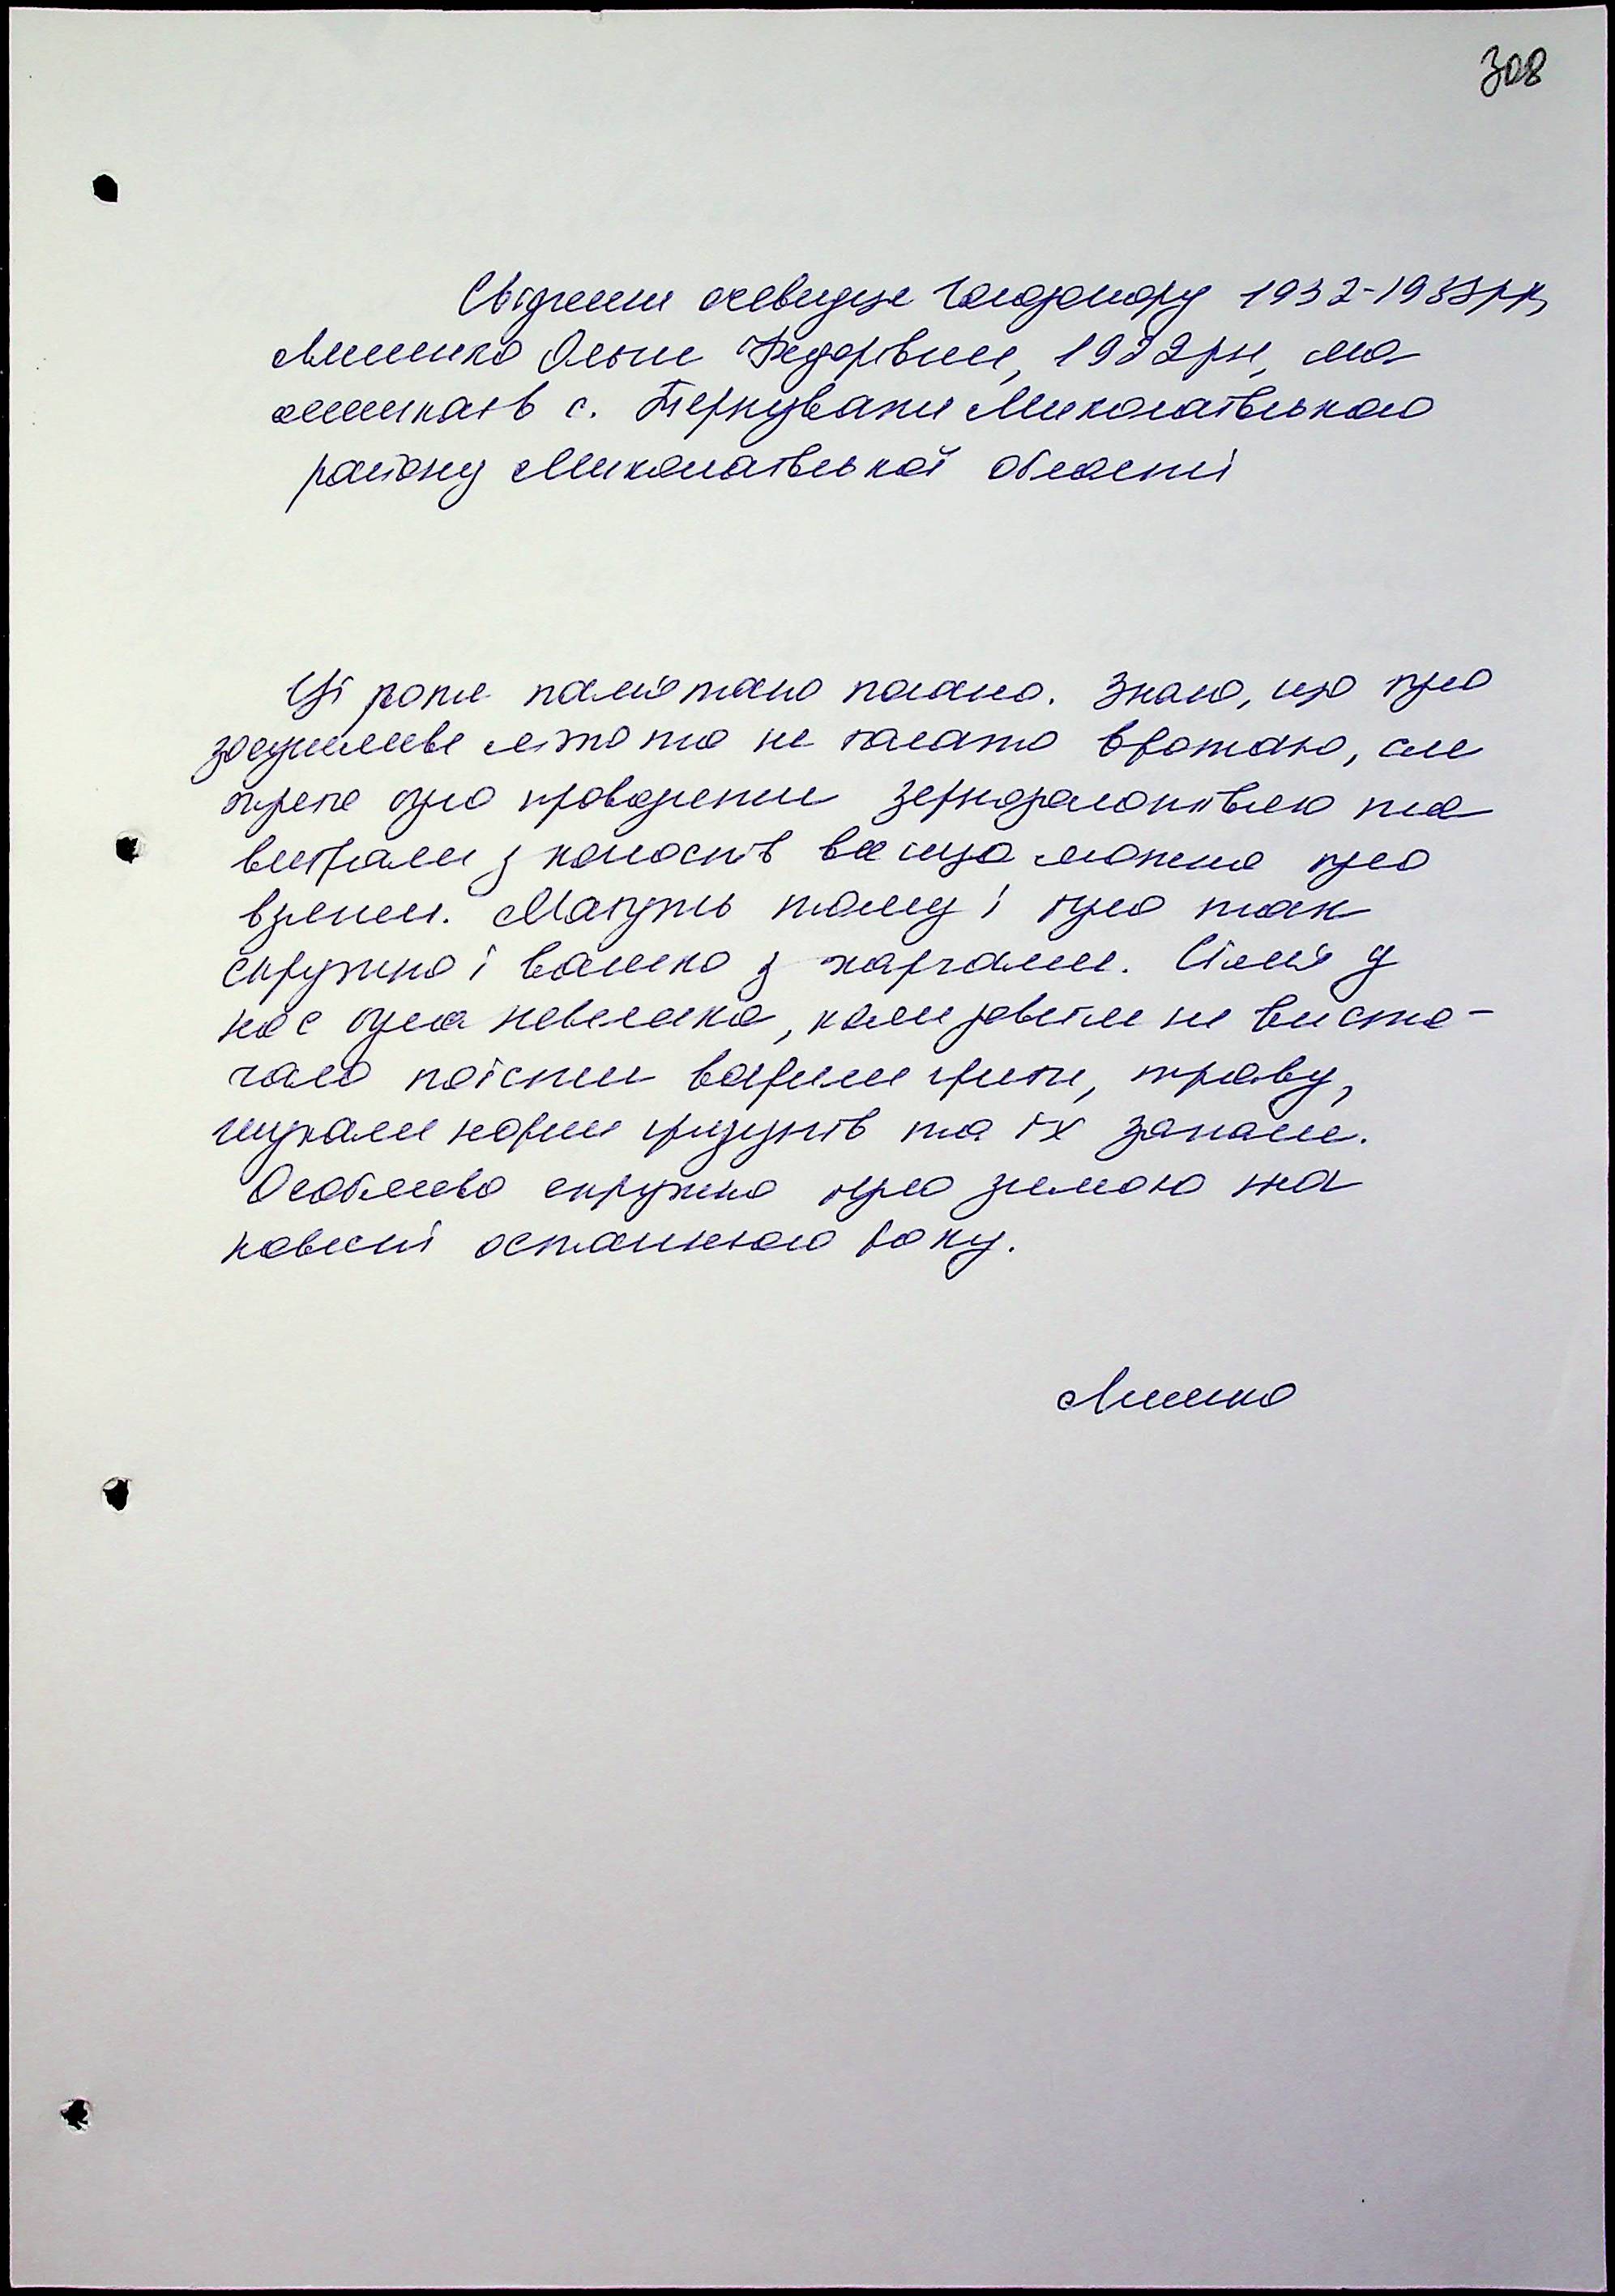 308
Свідчення очевидця Голодомору 1932-1933рр,
Лишенко Ольги Федорівни, 1922рн, що
мешкає в с. Тернувате Миколаївського
району Миколаївської області
Ці роки пам'ятаю погано. Знаю, що було
засушливе літо та не багато врожаю, але
було проведення зернозаготівлею та
вибрали з колоспів все що можна було
взяти. Мабуть тому і було так
скрутно і важко з харчами. Сім'я у
нас була невелика, коли зовсім не виста-
чало поїсти варили гриби, траву,
шукали норми гризунів та їх запаси.
Особливо скрутно було зимою та
навесні останнього року.